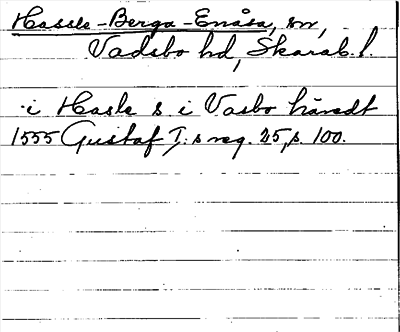 Hassle-Berga-Enåsa, sn,
Vadsbo hd, Skarab. l.
i Hasle s. i Vasbo häredt
1555 Gustaf I:s reg. 25, s. 100.